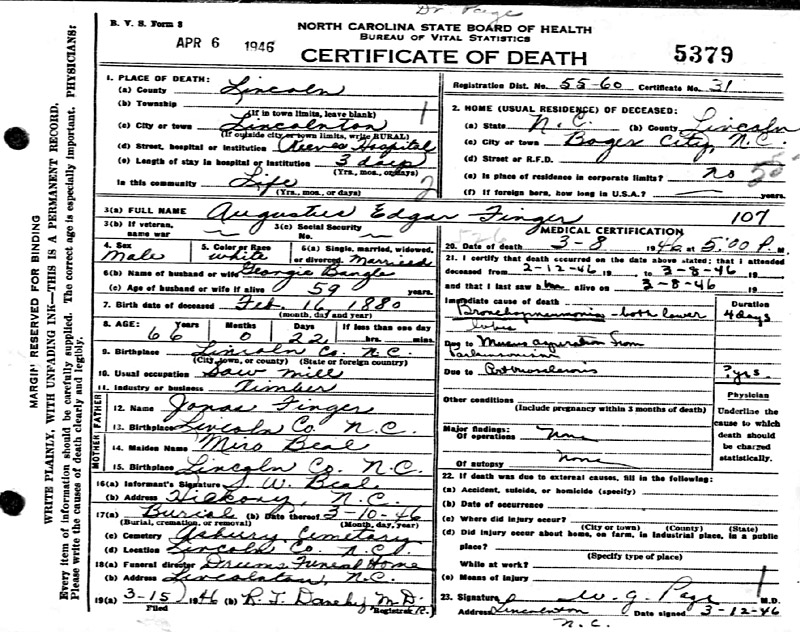 Dr Page
B. V. S. Form 8
NORTH CAROLINA STATE BOARD OF HEALTH
BUREAU OF VITAL STATISTICS
APR 6 1946
CERTIFICATE OF DEATH
5379
MARGIN RESERVED FOR BINDING
WRITE PLAINLY, WITH UNFADING INK—THIS IS A PERMANENT RECORD.
Every item of information should be carefully supplied. The correct age is especially important. PHYSICIANS:
Please write the causes of death clearly and legibly.
1. PLACE OF DEATH:
(a) County Lincoln
(b) Township 1
(If in town limits, leave blank)
(c) City or town Lincolnton
(If outside city or town limits, write RURAL)
(d) Street, hospital or institution Reeves Hospital
(e) Length of stay in hospital or institution 3 days
(Yrs., mos., or days)
In this community Life 2
(Yrs., mos., or days)
Registration Dist. No. 55-60 Certificate No. 31
2. HOME (USUAL RESIDENCE) OF DECEASED:
(a) State N.C. (b) County Lincoln
(c) City or town Boger City, N.C.
(d) Street or R.F.D.
(e) Is place of residence in corporate limits? no
(f) If foreign born, how long in U.S.A.? years.
3(a) FULL NAME Augustus Edgar Finger 107
3(b) If veteran, name war —
3(c) Social Security No. —
4. Sex Male
5. Color or Race white
6(a) Single, married, widowed, or divorced Married
6(b) Name of husband or wife Georgie Bangle
(c) Age of husband or wife if alive 59 years.
7. Birth date of deceased Feb. 16 1880
(month, day and year)
8. AGE: Years 66 Months 0 Days 22 If less than one day hrs. mins.
9. Birthplace Lincoln Co. N.C.
(City, town, or county) (State or foreign country)
10. Usual occupation Saw Mill
11. Industry or business Timber
FATHER
12. Name Jonas Finger
13. Birthplace Lincoln Co. N.C.
MOTHER
14. Maiden Name Miro Beal
15. Birthplace Lincoln Co. N.C.
16(a) Informant's Signature J. W. Beal
(b) Address Hickory, N.C.
17(a) Burial (b) Date thereof 3-10-46
(Burial, cremation, or removal) (Month, day, year)
(c) Cemetery Asbury Cemetery
(d) Location Lincoln Co. N.C.
18(a) Funeral director Drums Funeral Home
(b) Address Lincolnton, N.C.
19(a) 3-15 1946 (b) M.D.
Filed Registrar
MEDICAL CERTIFICATION
20. Date of death 3-8 1946 at 5:00 P. M.
21. I certify that death occurred on the date above stated; that I attended
deceased from 2-12-46 19 , to 3-8-46 19
and that I last saw alive on 3-8-46 19
Immediate cause of death Duration
Bronchopneumonia - both lower 4 days
lobes
Due to Mucus aspiration from
Parkinsonism
Due to Arteriosclerosis ? yrs.
Other conditions
(Include pregnancy within 3 months of death)
Major findings:
Of operations None
Of autopsy none
Physician
Underline the cause to which death should be charged statistically.
22. If death was due to external causes, fill in the following:
(a) Accident, suicide, or homicide (specify)
(b) Date of occurrence
(c) Where did injury occur?
(City or town) (County) (State)
(d) Did injury occur about home, on farm, in industrial place, in a public
place?
(Specify type of place)
While at work?
(e) Means of injury
23. Signature W. G. Page M.D.
Address Lincolnton N.C. Date signed 3-12-46